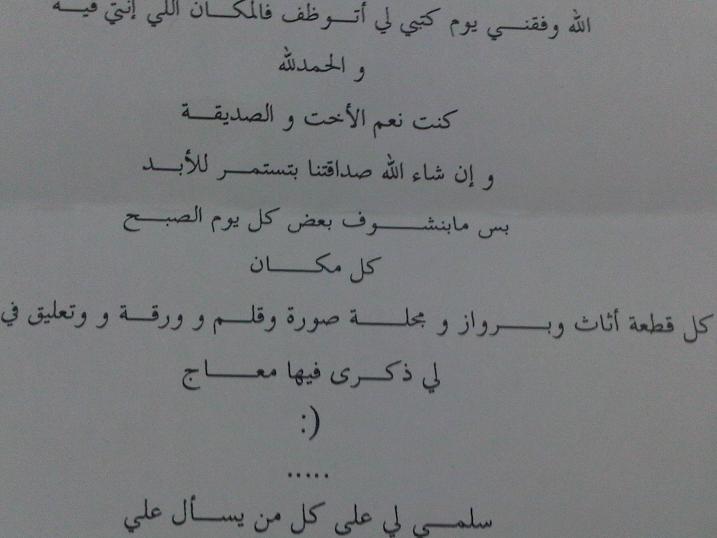 الله وفقني يوم كتبي لي أتوظف فالمكان اللي إنتي فيه
و الحمدلله
كنت نعم الأخت و الصديقة
و إن شاء الله صداقتنا بتستمر للأبد
بس مابنشوف بعض كل يوم الصبح
كل مكان
كل قطعة أثاث وبرواز و مجلة صورة وقلم و ورقة و وتعليق في
لي ذكرى فيها معاج
:)
.....
سلمي لي على كل من يسأل علي